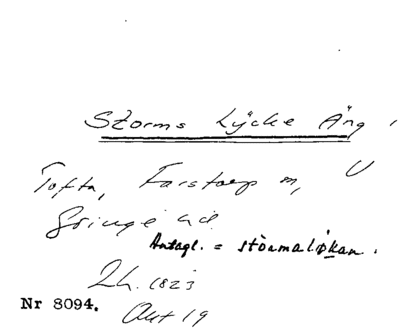 Storms Lycke Äng
Tofta, Farstorp m, V
Göinge hd.
Antagl. = störmaløkan.
Lh. 1823
Nr 8094. Akt 19